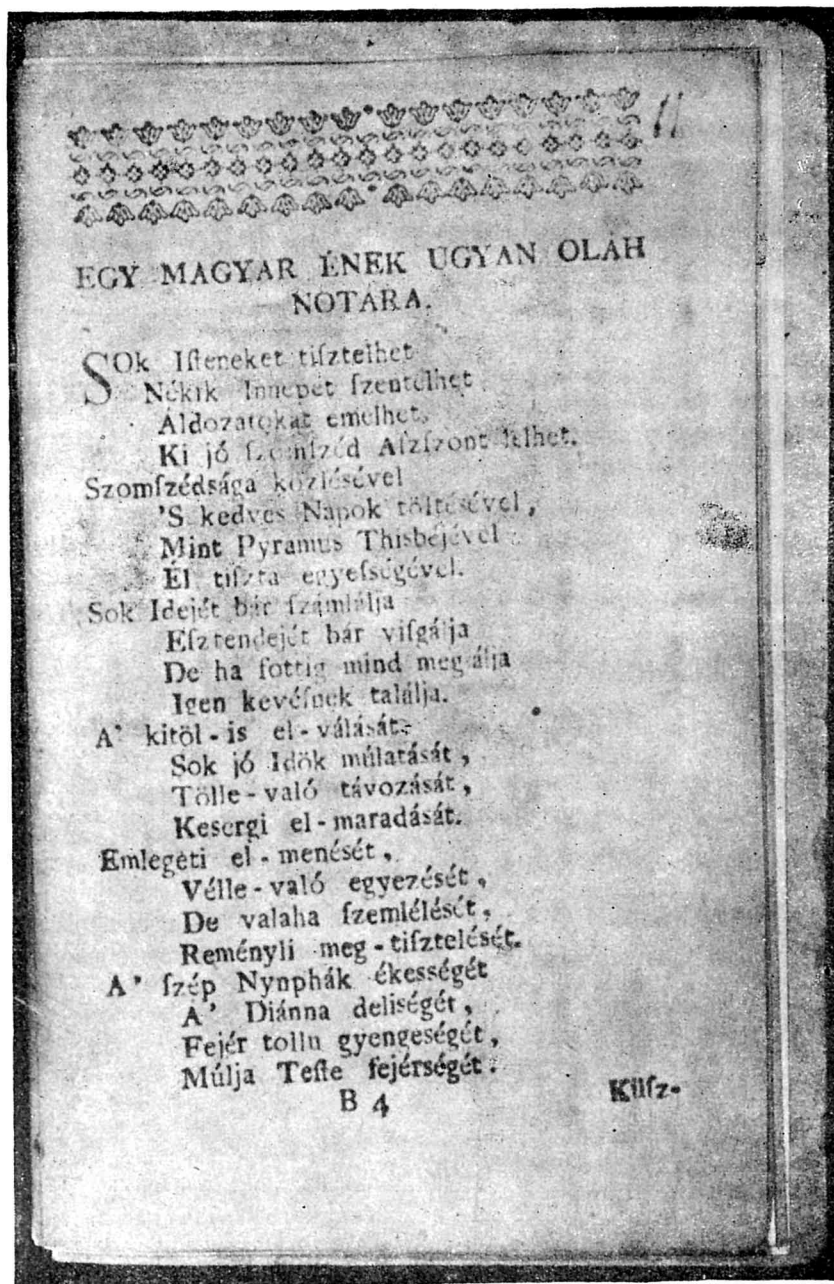 11
EGY MAGYAR ÉNEK UGYAN OLÁH
NOTÁRA.
SOk Iſteneket tiſztelhet
Nékik Innepet ſzentelhet
Áldozatokat emelhet,
Ki jó ſzomſzéd Aſzſzont lelhet.
Szomſzédsága közlésével
'S kedves Napok töltésével,
Mint Pyramus Thisbéjével
Él tiſzta egyeſségével.
Sok Idejét bár ſzámlálja
Eſztendejét bár viſgálja
De ha ſottig mind meg-álja
Igen kevéſnek találja.
A' kitöl-is el-válását,
Sok jó Idök múlatását,
Tölle-való távozását,
Kesergi el-maradását.
Emlegeti el-menését,
Vélle-való egyezését,
De valaha ſzemlélését,
Reményli meg-tiſztelését.
A' ſzép Nynphák ékességét
A' Diánna deliségét,
Fejér tollu gyengeségét,
Múlja Teſte fejérségét.
B 4
Küſz-